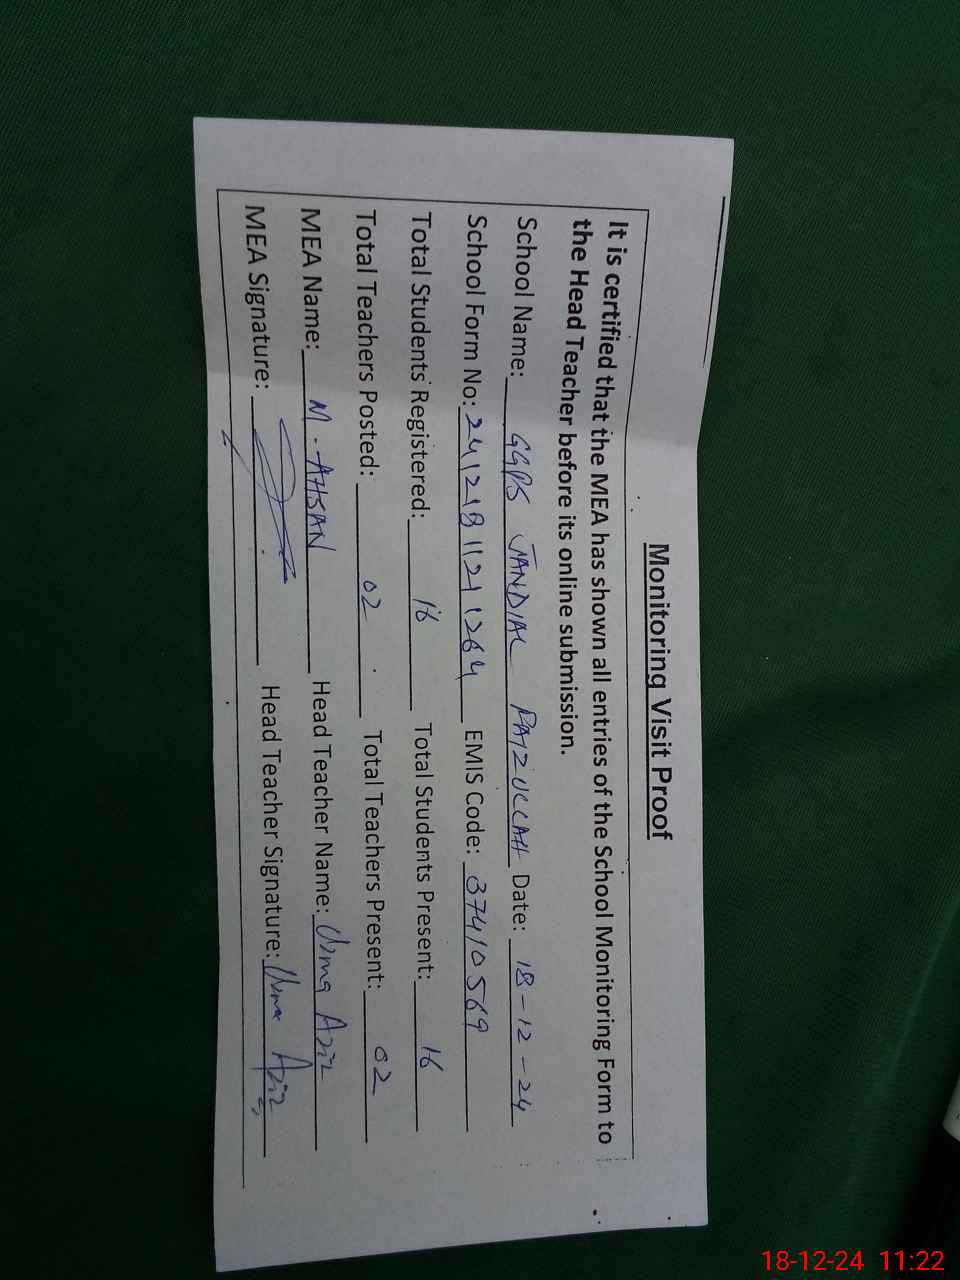 Monitoring Visit Proof
It is certified that the MEA has shown all entries of the School Monitoring Form to
the Head Teacher before its online submission.
School Name: GGPS JANDIAL PAIZULLAH Date: 18-12-24
School Form No: 241218112411264 EMIS Code: 37410569
Total Students Registered: 16 Total Students Present: 16
Total Teachers Posted: 02 Total Teachers Present: 02
MEA Name: M. AHSAN Head Teacher Name: Uzma Aziz
MEA Signature: Head Teacher Signature: Uzma Aziz
18-12-24 11:22